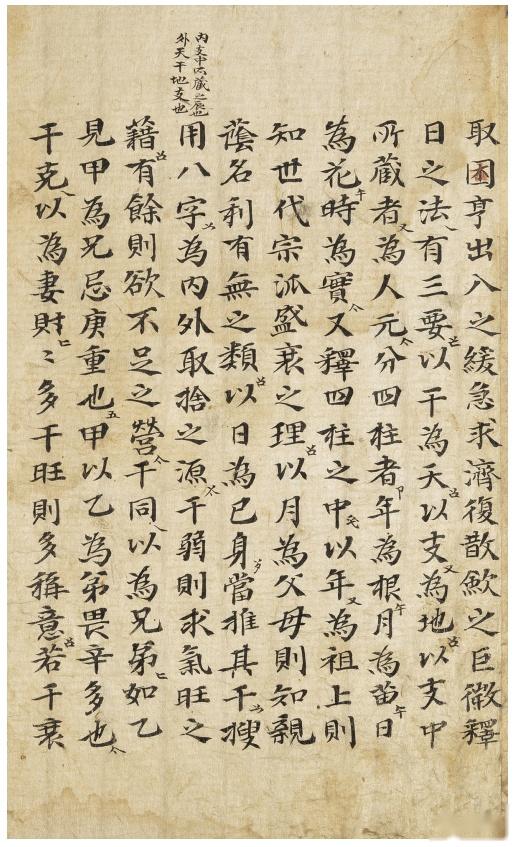 内支中所藏之辰也
外天干地支也
取困亨出入之緩急求濟復散歛之巨微釋
日之法有三要以干為天以支為地以支中
所藏者為人元分四柱者年為根月為苗日
為花時為實又釋四柱之中以年為祖上則
知世代宗派盛衰之理以月為父母則知親
蔭名利有無之類以日為已身當推其干搜
用八字為内外取捨之源干弱則求氣旺之
藉有餘則欲不足之營干同以為兄弟如乙
見甲為兄忌庚重也甲以乙為弟畏辛多也
干克以為妻財〻多干旺則多稱意若干衰